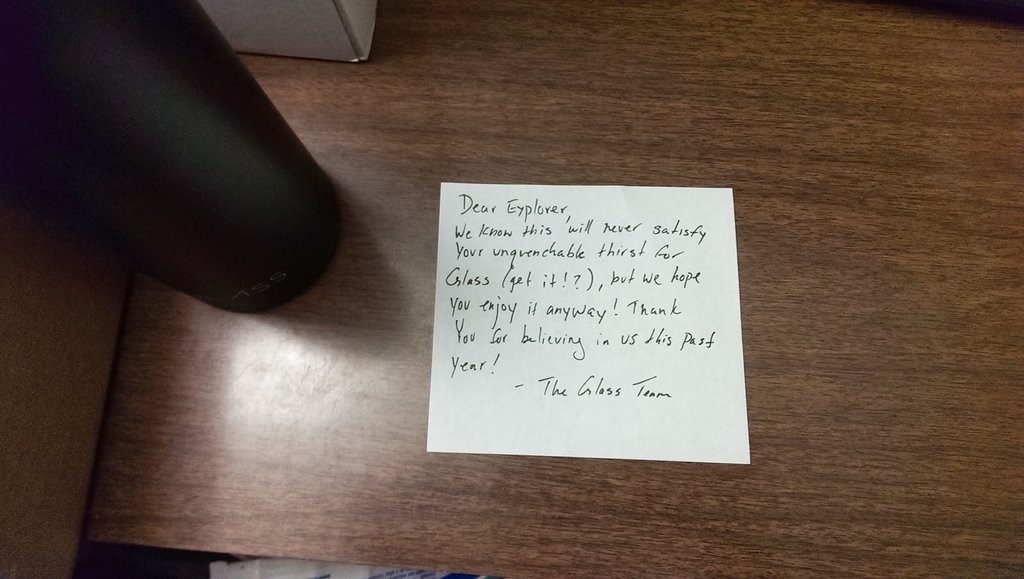 Dear Explorer,
We know this will never satisfy
your unquenchable thirst for
Glass (get it!?), but we hope
you enjoy it anyway! Thank
you for believing in us this past
year!
- The Glass Team